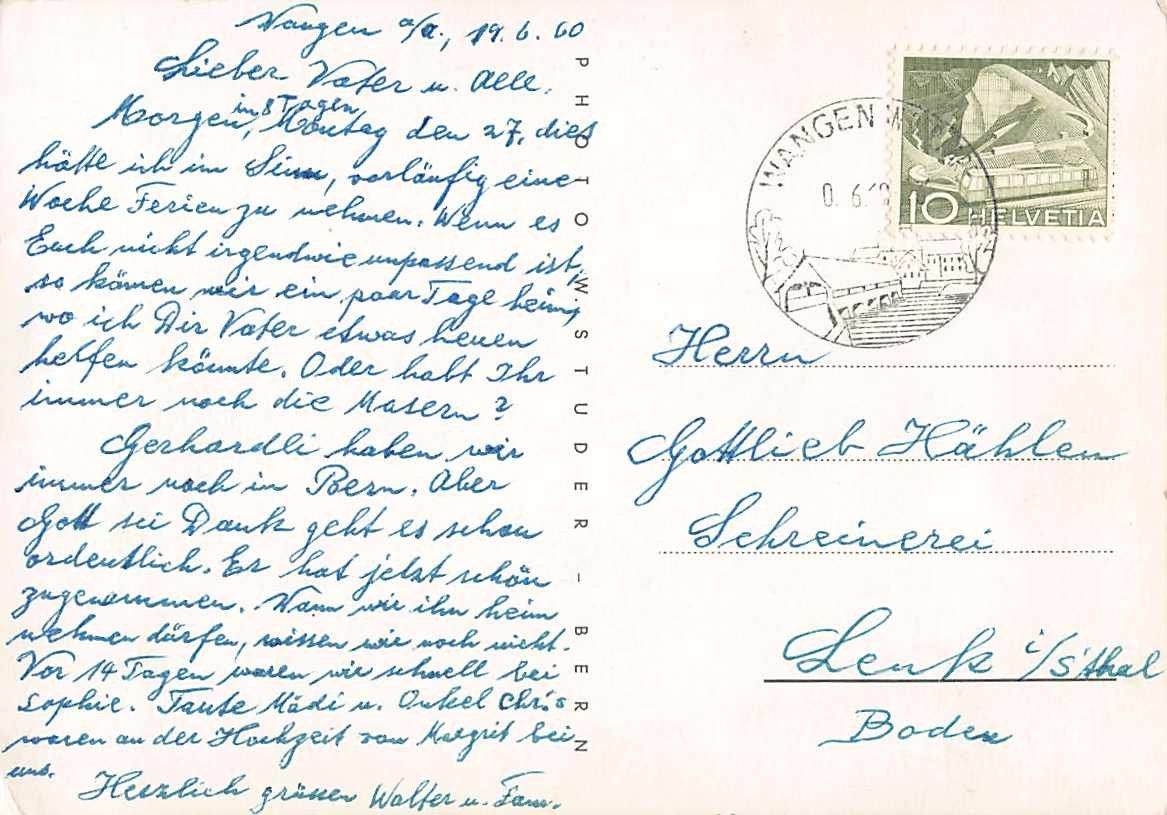 Wangen a/A., 19. 6. 60
Lieber Vater u. Alle.
in 8 Tagen
Morgen, Montag den 27. dies
hätte ich im Sinn, vorläufig eine
Woche Ferien zu nehmen. Wenn es
Euch nicht irgendwie unpassend ist,
so kämen wir ein paar Tage heim,
wo ich Dir Vater etwas heuen
helfen könnte. Oder habt Ihr
immer noch die Masern?
Gerhardli haben wir
immer noch in Bern. Aber
Gott sei Dank geht es schon
ordentlich. Er hat jetzt schön
zugenommen. Wann wir ihn heim
nehmen dürfen, wissen wir noch nicht.
Vor 14 Tagen waren wir schnell bei
Sophie. Tante Mädi u. Onkel Chris
waren an der Hochzeit von Margrit bei
uns.
Herzlich grüssen Walter u. Fam.
PHOTO W. STUDER - BERN
WANGEN
0. 6. 60
10 HELVETIA
Herrn
Gottlieb Hählen
Schreinerei
Lenk i/S'thal
Boden